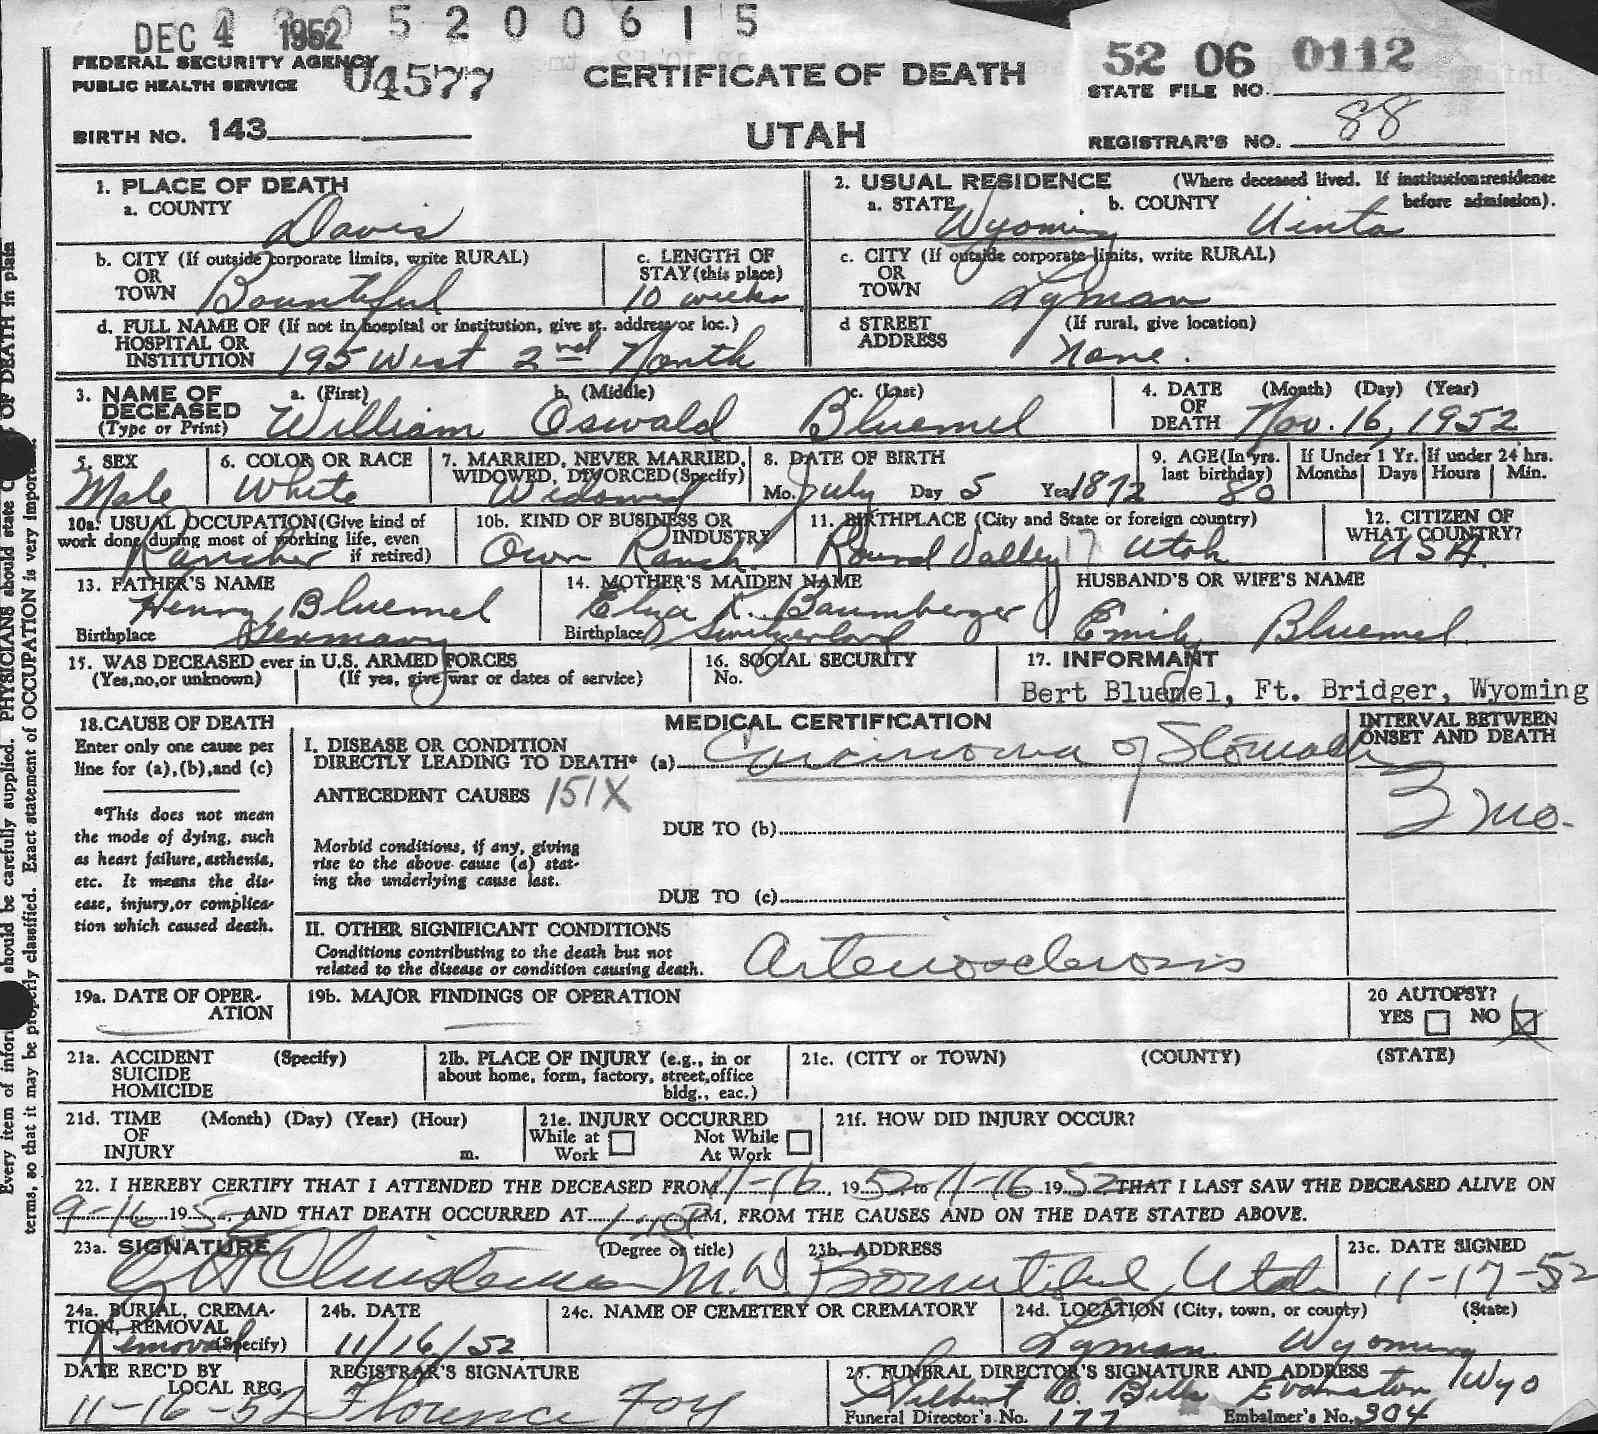 DEC 4 1952 5 2 0 0 6 1 5
FEDERAL SECURITY AGENCY
PUBLIC HEALTH SERVICE
04577
CERTIFICATE OF DEATH
UTAH
52 06 0112
STATE FILE NO.
BIRTH NO. 143
REGISTRAR'S NO. 88
1. PLACE OF DEATH
a. COUNTY
Davis
2. USUAL RESIDENCE (Where deceased lived. If institution: residence before admission).
a. STATE Wyoming b. COUNTY Uinta
b. CITY (If outside corporate limits, write RURAL)
OR
TOWN Bountiful
c. LENGTH OF
STAY (this place)
10 weeks
c. CITY (If outside corporate limits, write RURAL)
OR
TOWN Lyman
d. FULL NAME OF (If not in hospital or institution, give st. address or loc.)
HOSPITAL OR
INSTITUTION 195 West 2nd North
d STREET (If rural, give location)
ADDRESS None.
3. NAME OF DECEASED
(Type or Print)
a. (First) b. (Middle) c. (Last)
William Oswald Bluemel
4. DATE (Month) (Day) (Year)
OF
DEATH Nov. 16, 1952
5. SEX
Male
6. COLOR OR RACE
White
7. MARRIED, NEVER MARRIED,
WIDOWED, DIVORCED (Specify)
Widowed
8. DATE OF BIRTH
Mo. July Day 5 Year 1872
9. AGE (In yrs.
last birthday) 80
If Under 1 Yr.
Months Days
If under 24 hrs.
Hours Min.
10a. USUAL OCCUPATION (Give kind of
work done during most of working life, even
if retired)
Rancher
10b. KIND OF BUSINESS OR
INDUSTRY
Own Ranch
11. BIRTHPLACE (City and State or foreign country)
Round Valley 17 Utah
12. CITIZEN OF
WHAT COUNTRY?
USA.
13. FATHER'S NAME
Henry Bluemel
Birthplace Germany
14. MOTHER'S MAIDEN NAME
K. Baumberger
Birthplace Switzerland
HUSBAND'S OR WIFE'S NAME
Emily Bluemel
15. WAS DECEASED ever in U.S. ARMED FORCES
(Yes,no,or unknown) (If yes, give war or dates of service)
16. SOCIAL SECURITY
No.
17. INFORMANT
Bert Bluemel, Ft. Bridger, Wyoming
18. CAUSE OF DEATH
Enter only one cause per
line for (a),(b),and (c)
*This does not mean
the mode of dying, such
as heart failure, asthenia,
etc. It means the dis-
ease, injury,or complica-
tion which caused death.
MEDICAL CERTIFICATION
I. DISEASE OR CONDITION
DIRECTLY LEADING TO DEATH* (a) Carcinoma of Stomach
ANTECEDENT CAUSES 151X
DUE TO (b)
Morbid conditions, if any, giving
rise to the above cause (a) stat-
ing the underlying cause last.
DUE TO (c)
INTERVAL BETWEEN
ONSET AND DEATH
3 mo.
II. OTHER SIGNIFICANT CONDITIONS
Conditions contributing to the death but not
related to the disease or condition causing death.
Arteriosclerosis
19a. DATE OF OPER-
ATION
19b. MAJOR FINDINGS OF OPERATION
20 AUTOPSY?
YES NO X
21a. ACCIDENT (Specify)
SUICIDE
HOMICIDE
21b. PLACE OF INJURY (e.g., in or
about home, form, factory, street,office
bldg., eac.)
21c. (CITY or TOWN) (COUNTY) (STATE)
21d. TIME (Month) (Day) (Year) (Hour)
OF
INJURY m.
21e. INJURY OCCURRED
While at Work
Not While At Work
21f. HOW DID INJURY OCCUR?
22. I HEREBY CERTIFY THAT I ATTENDED THE DECEASED FROM 11-16, 1952 to 11-16 1952 THAT I LAST SAW THE DECEASED ALIVE ON
9-16 1952, AND THAT DEATH OCCURRED AT PM, FROM THE CAUSES AND ON THE DATE STATED ABOVE.
23a. SIGNATURE (Degree or title)
Christensen M.D.
23b. ADDRESS
Bountiful, Utah
23c. DATE SIGNED
11-17-52
24a. BURIAL, CREMA-
TION, REMOVAL
(Specify)
Removal
24b. DATE
11/16/52
24c. NAME OF CEMETERY OR CREMATORY
24d. LOCATION (City, town, or county) (State)
Lyman Wyoming
DATE REC'D BY
LOCAL REG.
11-16-52
REGISTRAR'S SIGNATURE
Florence Foy
25. FUNERAL DIRECTOR'S SIGNATURE AND ADDRESS
Bills Evanston Wyo
Funeral Director's No. 177 Embalmer's No. 304